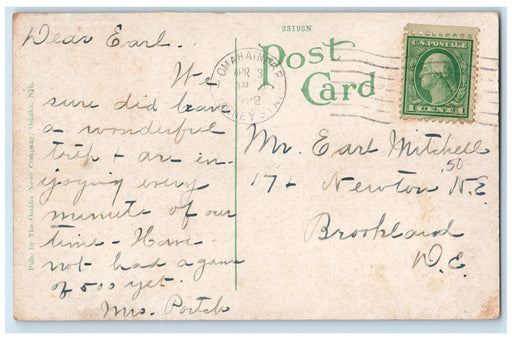 23193N
Post
Card
U.S. POSTAGE
OMAHA, NEBR.
APR 3
Dear Earl.
We
sure did have
a wonderful
trip + are en-
joying every
minute of our
time - Have
not had a game
of 500 yet.
Mrs. Portch
Mr. Earl Mitchell
17+ Newton N.E.
Brookland
D.C.
Pub. by The Omaha News Company, Omaha, Neb.